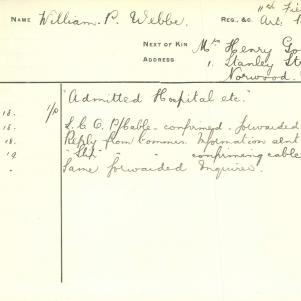 NAME William. P. Webbe.
REG., &C. 11th Fie
Art.
NEXT OF KIN Mrs Henry Go
ADDRESS 1. Stanley St
Norwood.
"Admitted Hospital etc."
18. 1/P
18. S.C.O. P/Cable confirmed forwarded
18. Reply from Commr. Information sent
19 " Shf " " confirming cable
- Same forwarded Enquirer.